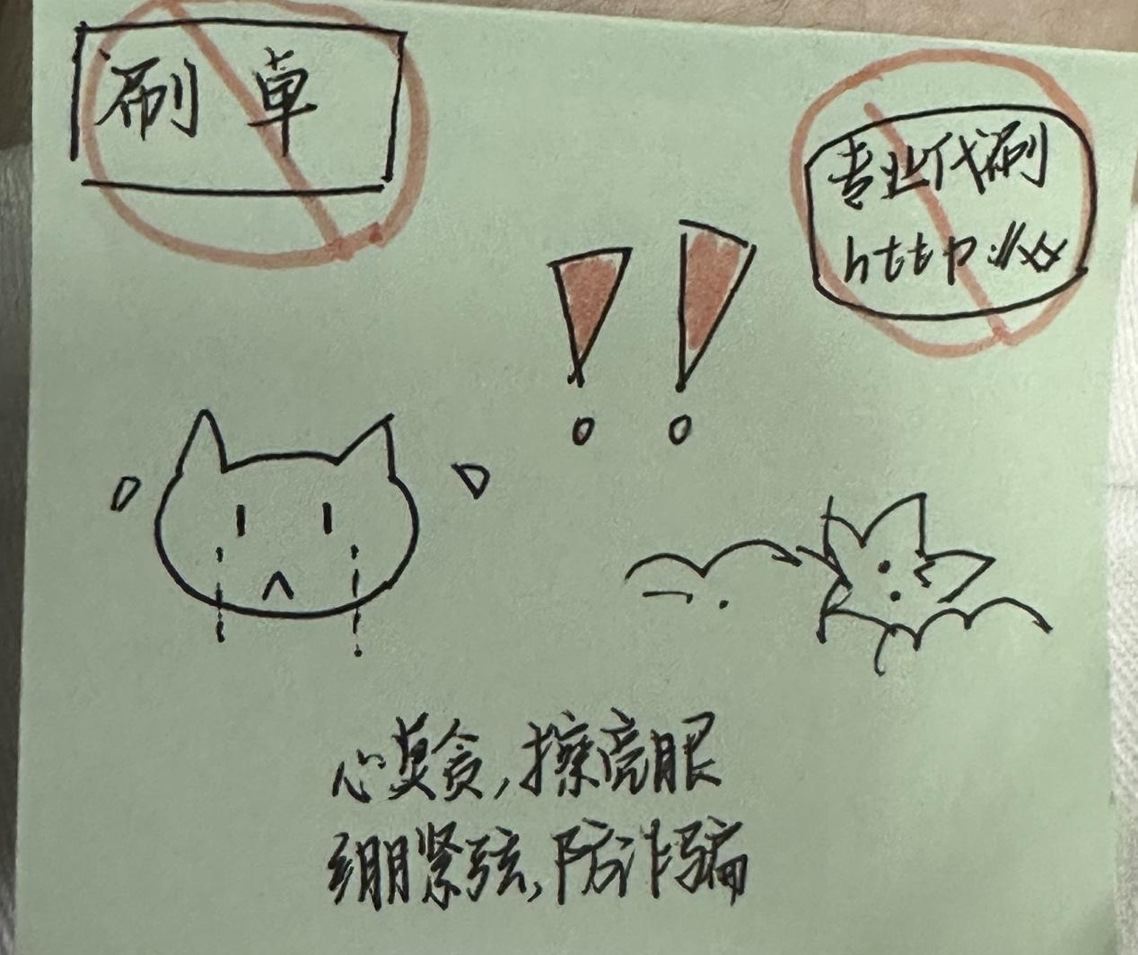 刷单
专业代刷
http://xx
心莫贪,擦亮眼
绷紧弦,防诈骗